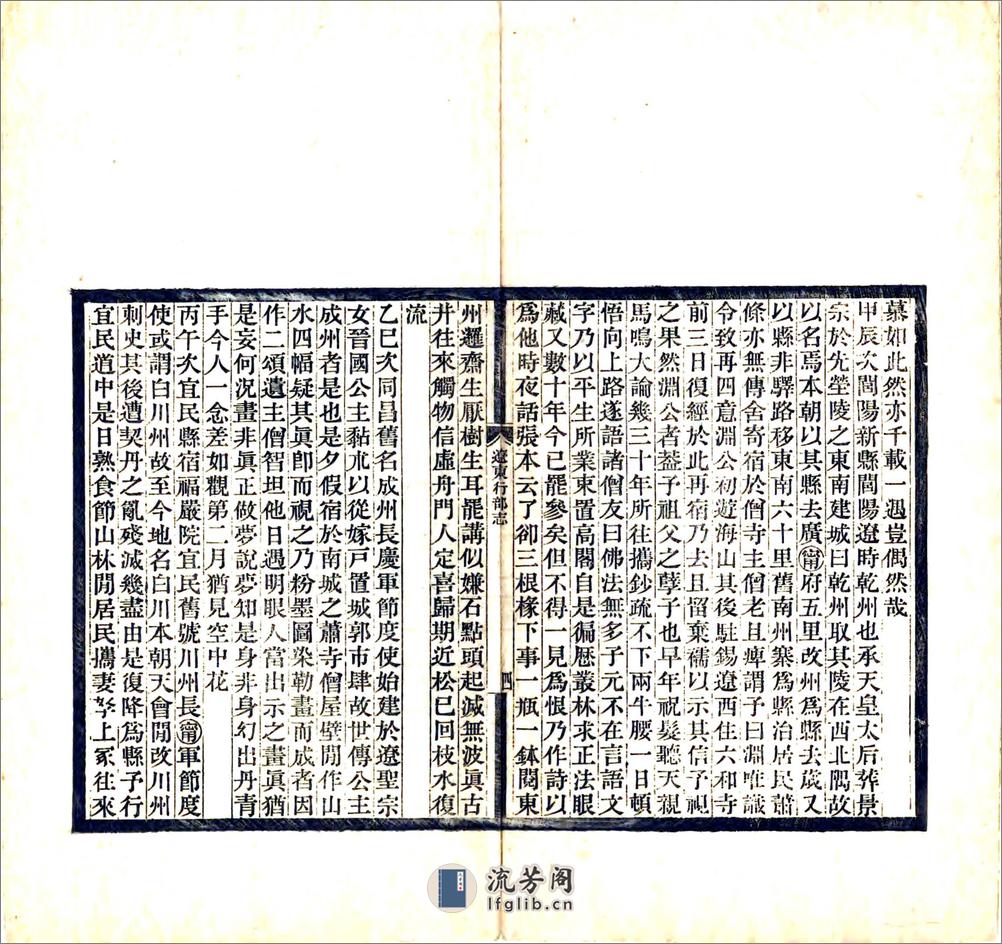 慕如此然亦千載一遇豈偶然哉
甲辰次閭陽新縣閭陽遼時乾州也承天皇太后葬景
宗於先塋陵之東南建城曰乾州取其陵在西北隅故
以名焉本朝以其縣去廣甯府五里改州爲縣去歲又
以縣非驛路移東南六十里舊南州寨爲縣治居民蕭
條亦無傳舍寄宿於僧寺主僧老且痺謂予曰淵唯識
令致再四意淵公初遊海山其後駐錫遼西住六和寺
前三日復經於此再宿乃去且留棄襦以示其信予視
之果然淵公者葢予祖父之孽子也早年祝髮聽天親
馬鳴大論幾三十年所往攜鈔疏不下兩牛腰一日頓
悟向上路遂語諸僧友曰佛法無多子元不在言語文
字乃以平生所業束置高閣自是徧歷叢林求正法眼
藏又數十年今已罷參矣但不得一見爲恨乃作詩以
爲他時夜話張本云了卻三根椽下事一瓶一鉢閱東
遼東行部志
四
州邏齋生厭樹生耳罷講似嫌石點頭起滅無波眞古
井往來觸物信虛舟門人定喜歸期近松已回枝水復
流
乙巳次同昌舊名成州長慶軍節度使始建於遼聖宗
女晉國公主黏朮以從嫁戸置城郭市肆故世傳公主
成州者是也是夕假宿於南城之蕭寺僧屋壁閒作山
水四幅疑其眞卽而視之乃粉墨圖染勒畫而成者因
作二頌遺主僧智坦他日遇明眼人當出示之畫眞猶
是妄何況畫非眞正做夢說夢知是身非身幻出丹青
手今人一念差如觀第二月猶見空中花
丙午次宜民縣宿福嚴院宜民舊號川州長甯軍節度
使或謂白川州故至今地名白川本朝天會閒改川州
刺史其後遭契丹之亂殘滅幾盡由是復降爲縣予行
宜民道中是日熟食節山林閒居民攜妻孥上冢往來
流芳阁
lfglib.cn